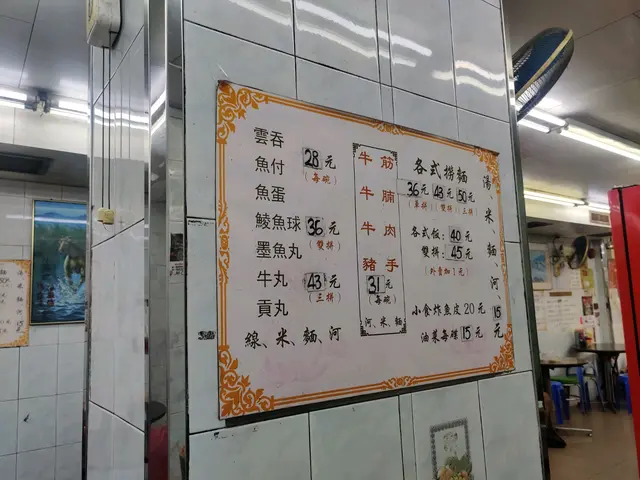 雲吞
魚付 28元
(每碗)
魚蛋
鯪魚球 36元
(雙拼)
墨魚丸
牛丸 43元
(三拼)
貢丸
線、米、麵、河
牛筋
牛腩
牛肉
豬手
31元
(每碗)
河、米、麵
各式撈麵
36元 43元 50元
(單拼) (雙拼) (三拼)
各式飯:40元
雙拼:45元
(外賣加1元)
小食炸魚皮20元
油菜每碟15元
湯米、麵、河、15元